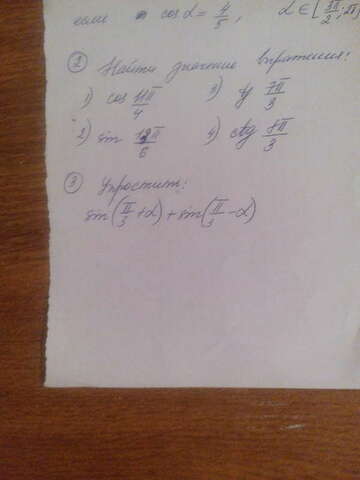 если cos α = 4/5, α ∈ [3π/2; 2π]
② Найти значение выражения:
1) cos 11π/4 3) tg 7π/3
2) sin 13π/6 4) ctg 8π/3
③ Упростить:
sin(π/3 + α) + sin(π/3 − α)